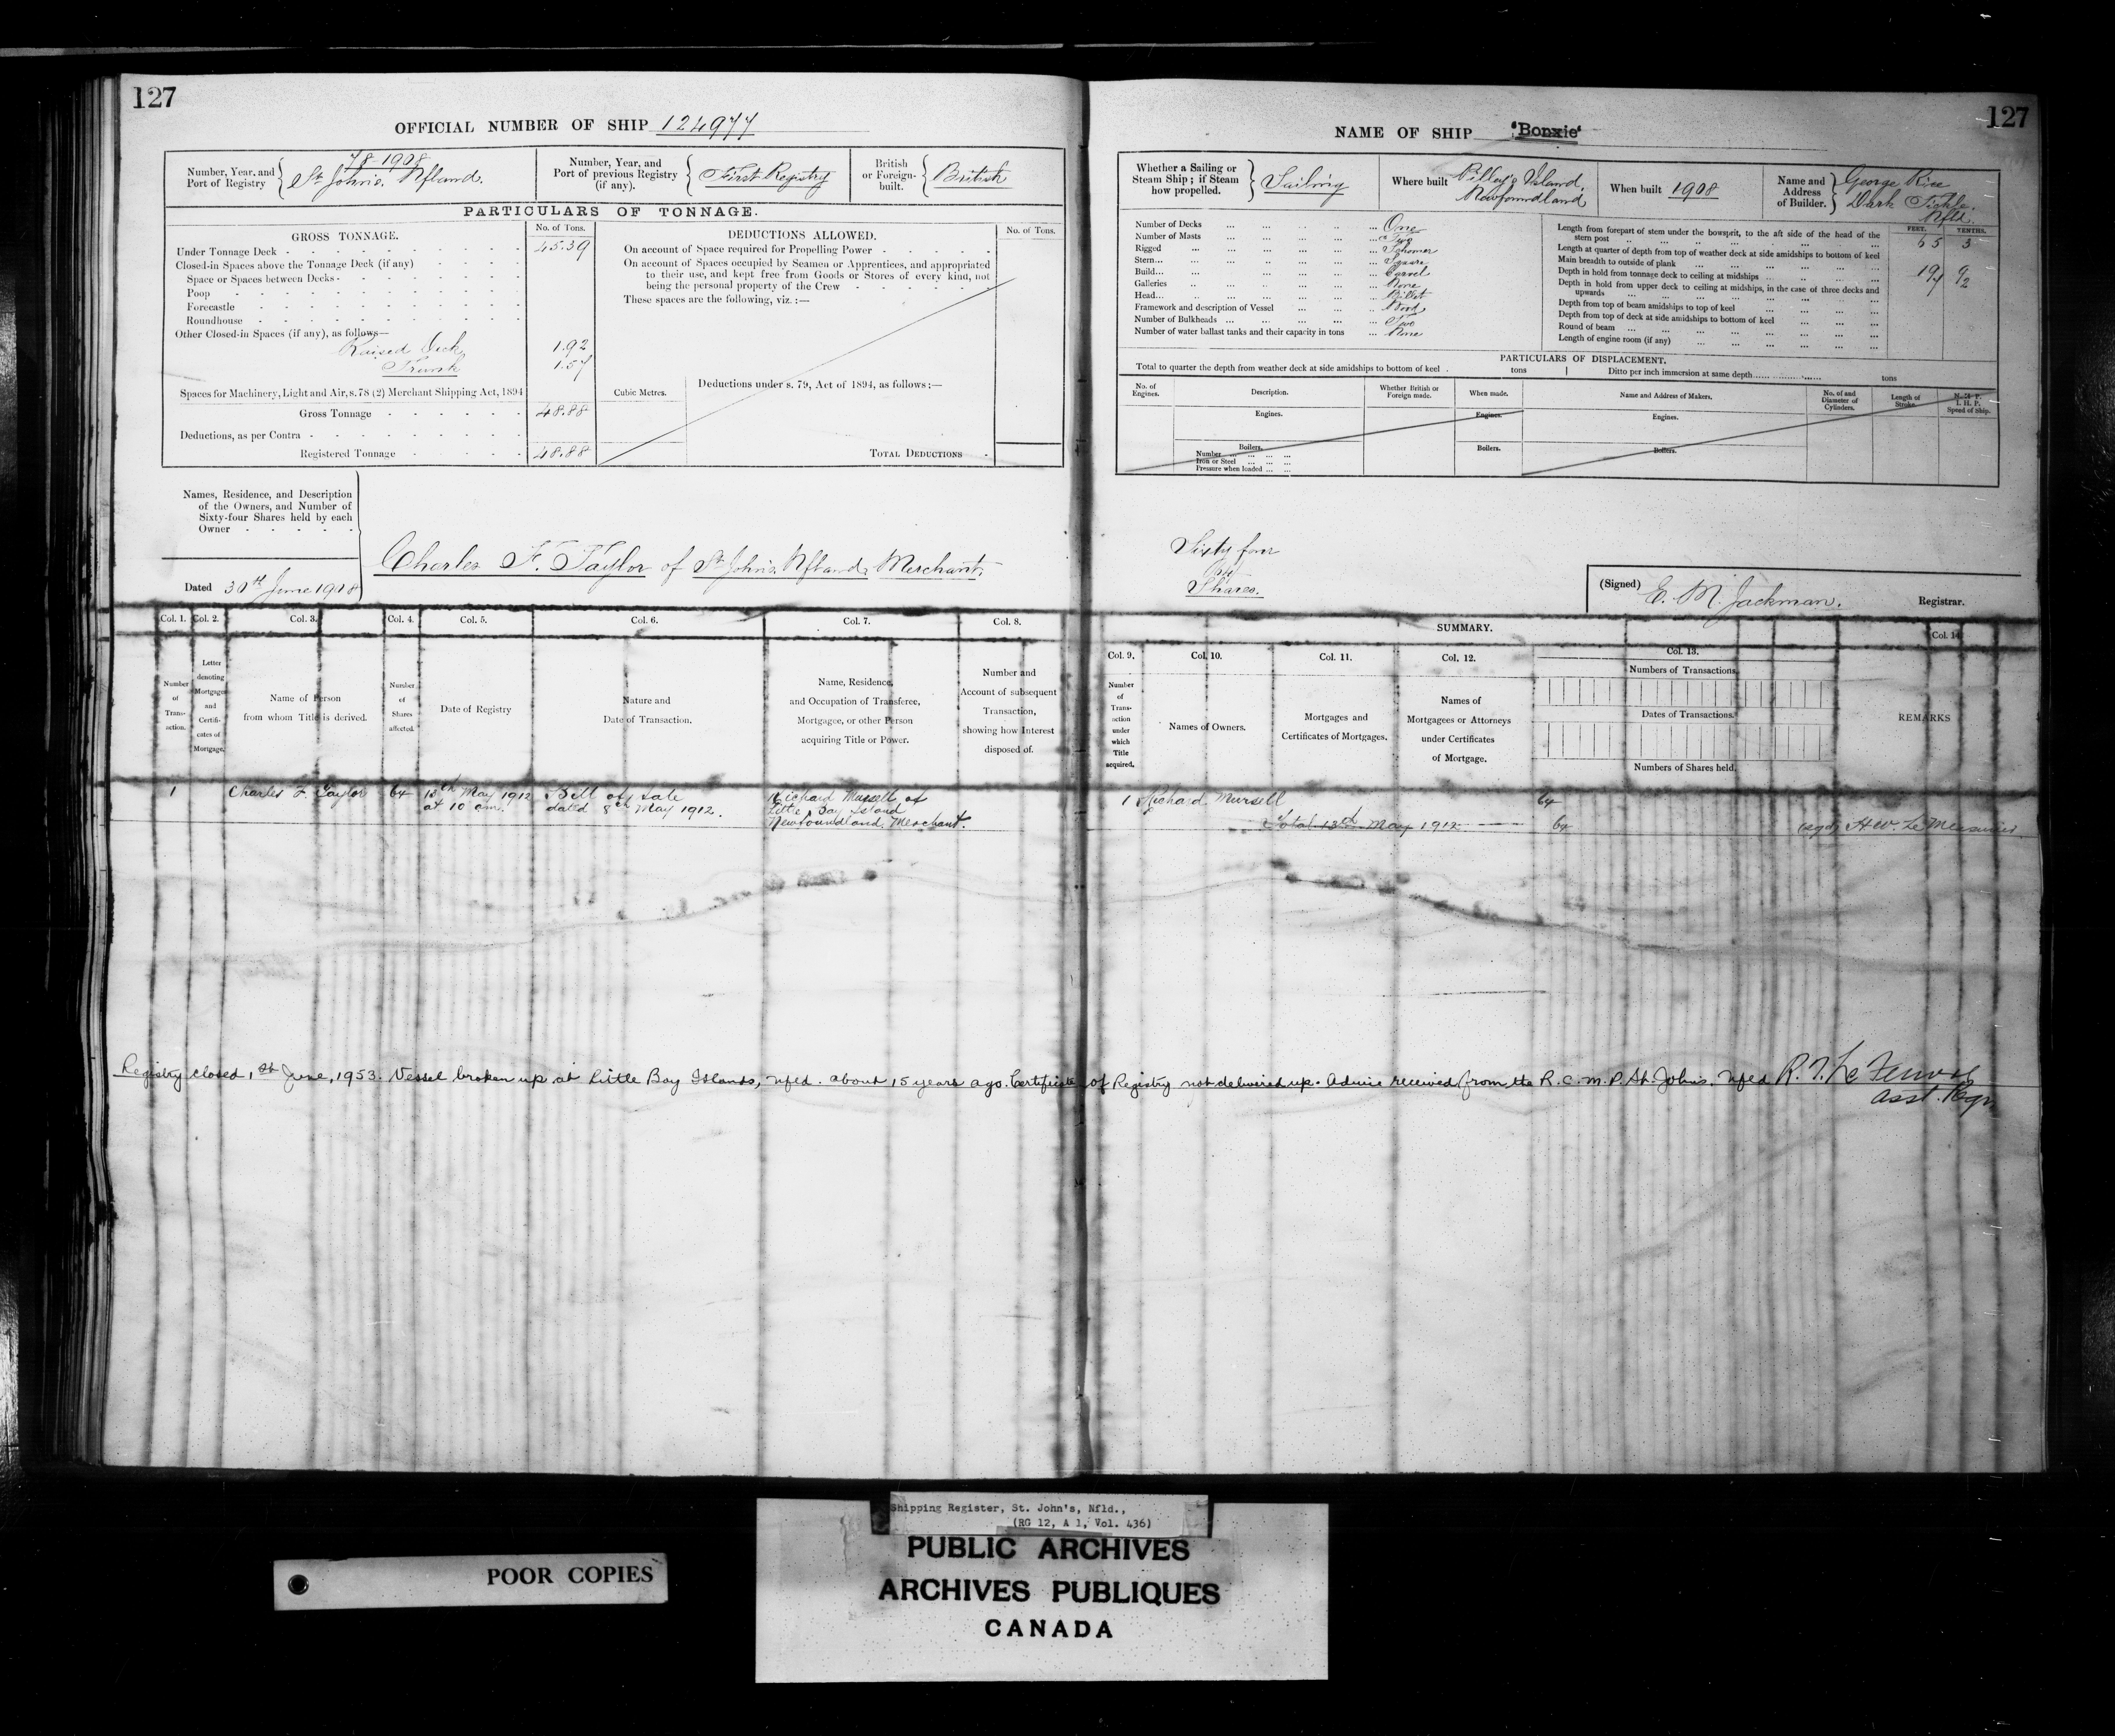 127
OFFICIAL NUMBER OF SHIP 124977
Number, Year, and Port of Registry
78-1908
St. John's, Nfland.
Number, Year, and Port of previous Registry (if any).
First Registry
British or Foreign-built.
British
PARTICULARS OF TONNAGE.
GROSS TONNAGE.
No. of Tons.
Under Tonnage Deck - 45.39
Closed-in Spaces above the Tonnage Deck (if any)
Space or Spaces between Decks
Poop
Forecastle
Roundhouse
Other Closed-in Spaces (if any), as follows—
Raised Deck 1.92
Trunk 1.57
Spaces for Machinery, Light and Air, s. 78 (2) Merchant Shipping Act, 1894
Gross Tonnage 48.88
Deductions, as per Contra
Registered Tonnage 48.88
DEDUCTIONS ALLOWED.
No. of Tons.
On account of Space required for Propelling Power
On account of Spaces occupied by Seamen or Apprentices, and appropriated
to their use, and kept free from Goods or Stores of every kind, not
being the personal property of the Crew
These spaces are the following, viz.:—
Cubic Metres.
Deductions under s. 79, Act of 1894, as follows:—
TOTAL DEDUCTIONS
Names, Residence, and Description
of the Owners, and Number of
Sixty-four Shares held by each
Owner
Charles F. Taylor of St. John's, Nfland, Merchant.
Dated 30th June 1908
Col. 1.
Col. 2.
Col. 3.
Col. 4.
Col. 5.
Col. 6.
Col. 7.
Col. 8.
Number of Transaction.
Letter denoting Mortgage and Certificates of Mortgage.
Name of Person from whom Title is derived.
Number of Shares affected.
Date of Registry
Nature and Date of Transaction.
Name, Residence, and Occupation of Transferee, Mortgagee, or other Person acquiring Title or Power.
Number and Account of subsequent Transaction, showing how Interest disposed of.
1 Charles F. Taylor 64 13th May 1912 at 10 am. Bill of Sale dated 8th May 1912. Richard Mursell of Little Bay Island Newfoundland. Merchant.
127
NAME OF SHIP 'Bonxie'
Whether a Sailing or Steam Ship; if Steam how propelled.
Sailing
Where built
Pilley's Island, Newfoundland
When built 1908
Name and Address of Builder.
George Rice
Dark Tickle.
Nfld.
Number of Decks ... One
Number of Masts ... Two
Rigged ... Schooner
Stern... Square
Build... Carvel
Galleries ... None
Head... Billet
Framework and description of Vessel ... Wood
Number of Bulkheads ... Two
Number of water ballast tanks and their capacity in tons ... None
FEET. TENTHS.
Length from forepart of stem under the bowsprit, to the aft side of the head of the stern post 65 3
Length at quarter of depth from top of weather deck at side amidships to bottom of keel
Main breadth to outside of plank 19 9
Depth in hold from tonnage deck to ceiling at midships 7 2
Depth in hold from upper deck to ceiling at midships, in the case of three decks and upwards
Depth from top of beam amidships to top of keel
Depth from top of deck at side amidships to bottom of keel
Round of beam
Length of engine room (if any)
PARTICULARS OF DISPLACEMENT.
Total to quarter the depth from weather deck at side amidships to bottom of keel tons
Ditto per inch immersion at same depth tons
No. of Engines.
Description.
Whether British or Foreign made.
When made.
Name and Address of Makers.
No. of and Diameter of Cylinders.
Length of Stroke.
N.H.P. I.H.P. Speed of Ship.
Engines.
Engines.
Engines.
Boilers.
Number
Iron or Steel
Pressure when loaded
Boilers.
Boilers.
Sixty four
64
Shares.
(Signed) E. M. Jackman. Registrar.
SUMMARY.
Col. 9.
Col. 10.
Col. 11.
Col. 12.
Col. 13.
Col. 14
Number of Transaction under which Title acquired.
Names of Owners.
Mortgages and Certificates of Mortgages.
Names of Mortgagees or Attorneys under Certificates of Mortgage.
Numbers of Transactions.
Dates of Transactions.
Numbers of Shares held.
REMARKS
1 Richard Mursell 64
Total 13th May 1912 64 (sgd) H.W. LeMessurier
Registry closed 1st June, 1953. Vessel broken up at Little Bay Islands, Nfld. about 15 years ago. Certificate of Registry not delivered up. Advice received from the R.C.M.P. St. John's. Nfld
Asst. Rgr.
Shipping Register, St. John's, Nfld.,
(RG 12, A 1, Vol. 436)
POOR COPIES
PUBLIC ARCHIVES
ARCHIVES PUBLIQUES
CANADA